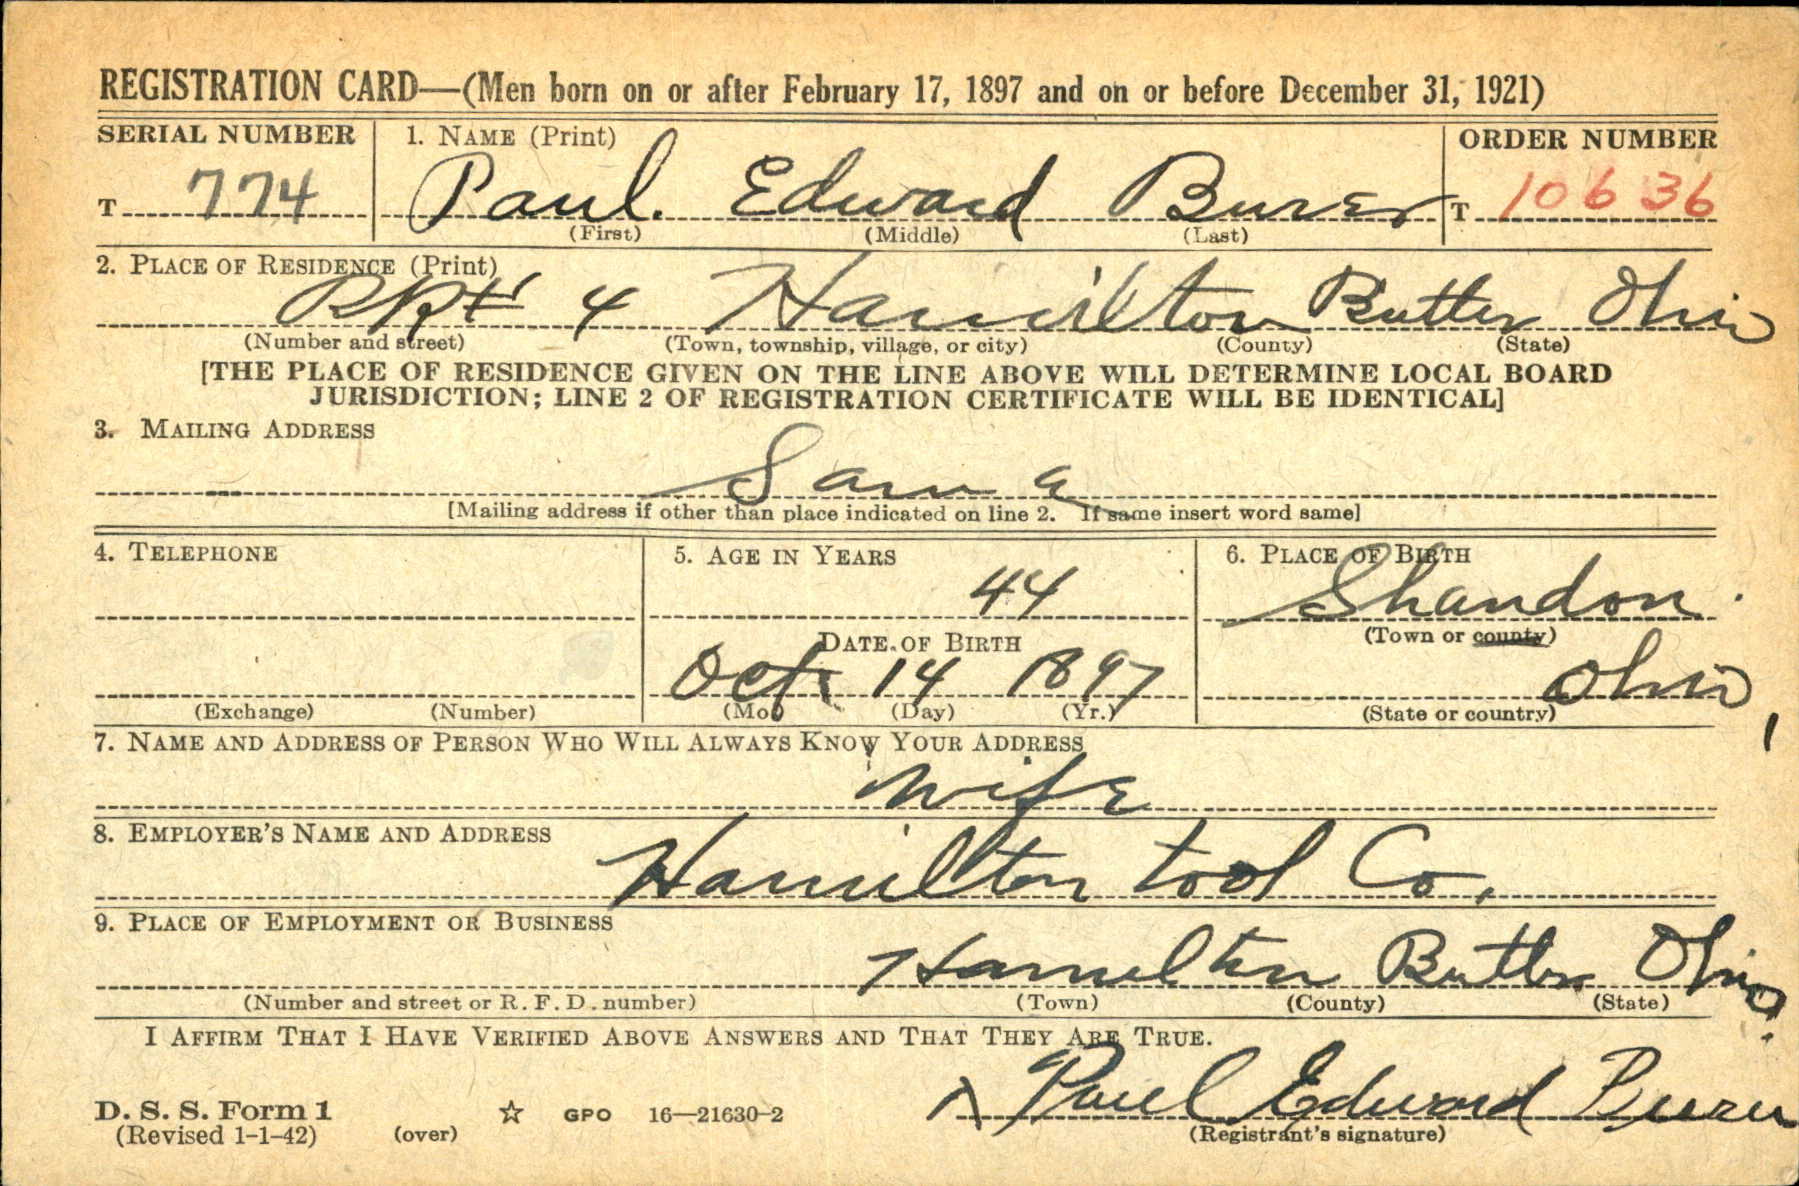 REGISTRATION CARD—(Men born on or after February 17, 1897 and on or before December 31, 1921)
SERIAL NUMBER 1. NAME (Print) ORDER NUMBER
T 774 Paul. Edward T 10636
(First) (Middle) (Last)
2. PLACE OF RESIDENCE (Print)
4 Hamilton Butler Ohio
(Number and street) (Town, township, village, or city) (County) (State)
[THE PLACE OF RESIDENCE GIVEN ON THE LINE ABOVE WILL DETERMINE LOCAL BOARD
JURISDICTION; LINE 2 OF REGISTRATION CERTIFICATE WILL BE IDENTICAL]
3. MAILING ADDRESS
Same
[Mailing address if other than place indicated on line 2. If same insert word same]
4. TELEPHONE 5. AGE IN YEARS 6. PLACE OF BIRTH
44 Shandon.
DATE OF BIRTH (Town or county)
Oct 14 1897 Ohio
(Exchange) (Number) (Mo.) (Day) (Yr.) (State or country)
7. NAME AND ADDRESS OF PERSON WHO WILL ALWAYS KNOW YOUR ADDRESS
wife
8. EMPLOYER'S NAME AND ADDRESS
Hamilton tool Co.
9. PLACE OF EMPLOYMENT OR BUSINESS
Hamilton Butler Ohio
(Number and street or R. F. D. number) (Town) (County) (State)
I AFFIRM THAT I HAVE VERIFIED ABOVE ANSWERS AND THAT THEY ARE TRUE.
Paul Edward
D. S. S. Form 1 ☆ GPO 16—21630-2
(Revised 1-1-42) (over) (Registrant's signature)